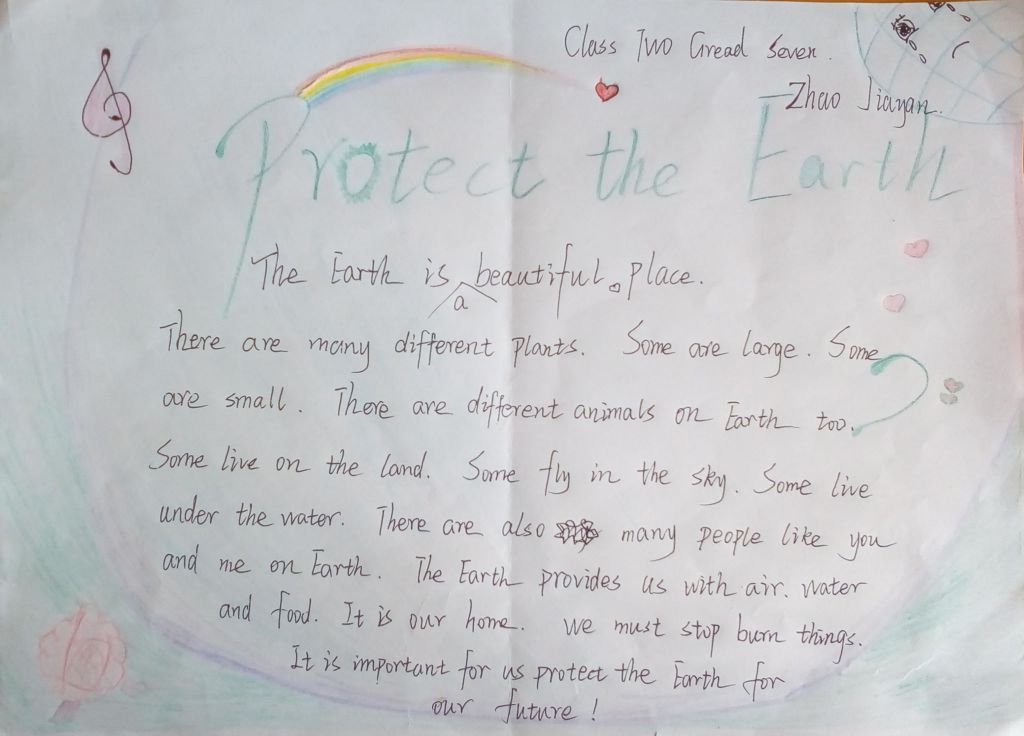 Class Two Gread Seven.
Zhao Jiayan.
Protect the Earth
The Earth is a beautiful place.
There are many different plants. Some are large. Some
are small. There are different animals on Earth too.
Some live on the land. Some fly in the sky. Some live
under the water. There are also many people like you
and me on Earth. The Earth provides us with air. water
and food. It is our home. we must stop burn things.
It is important for us protect the Earth for
our future!